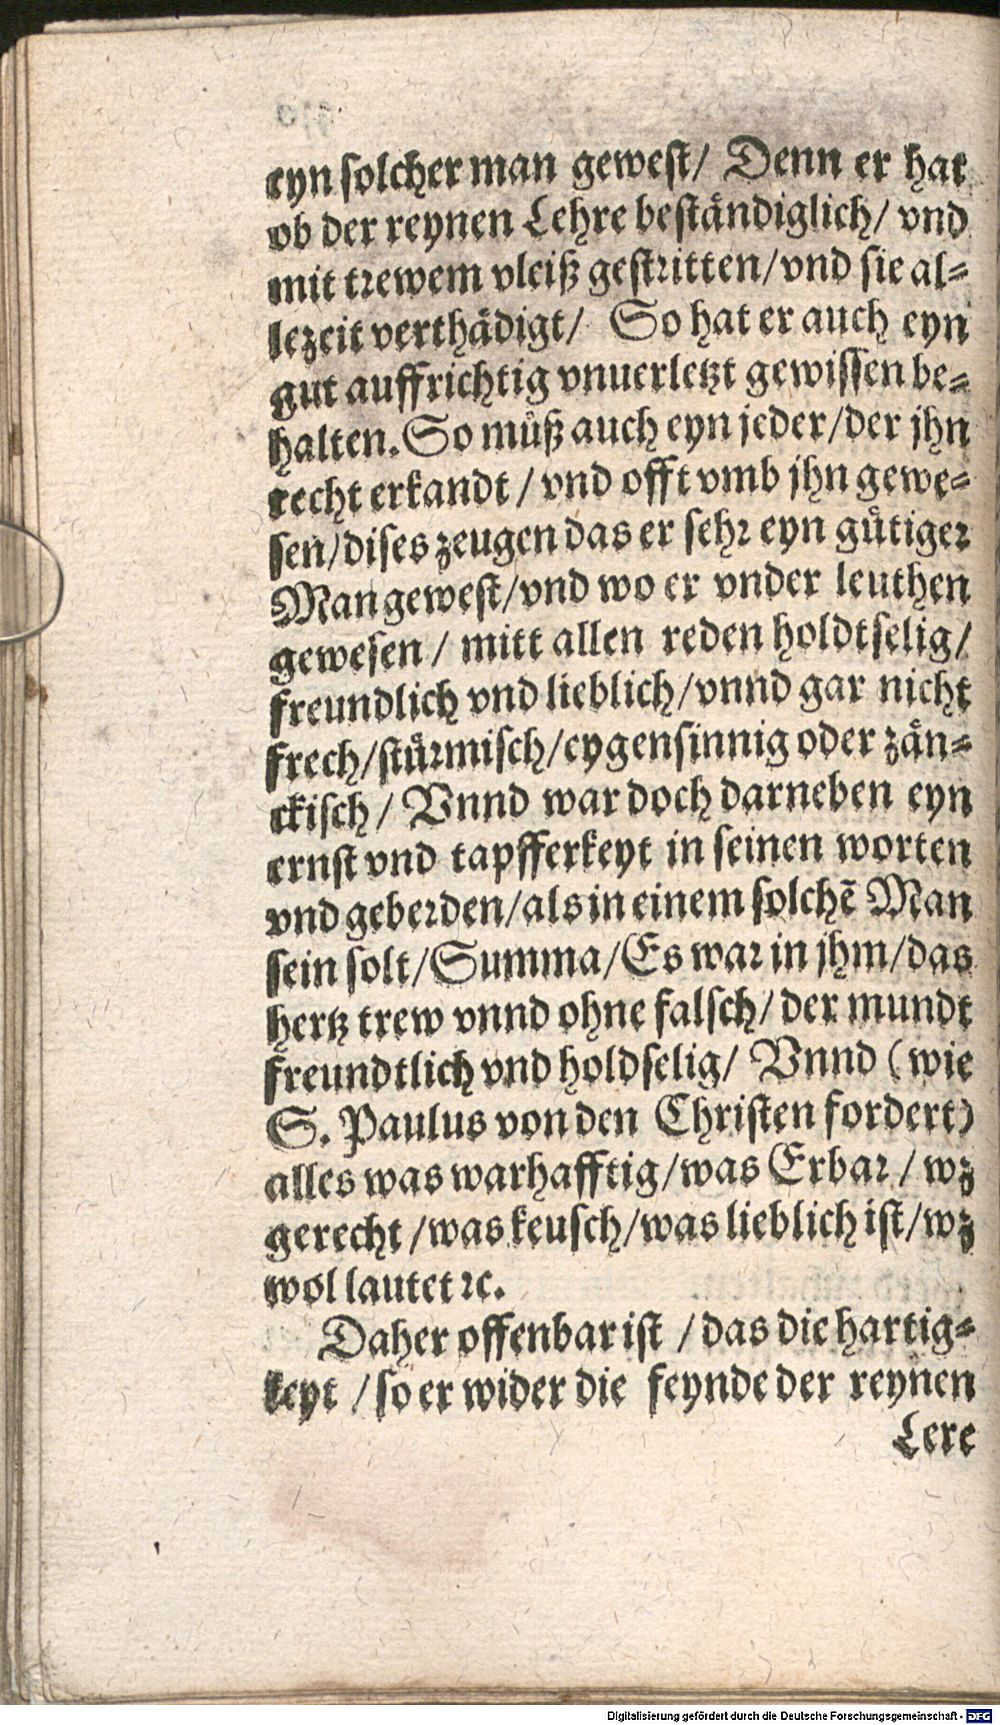 eyn solcher man gewest/ Denn er hat
ob der reynen Lehre beständiglich/ vnd
mit trewem vleiß gestritten/vnd sie al-
lezeit verthädigt/ So hat er auch eyn
gut auffrichtig vnuerletzt gewissen be-
halten. So muͦß auch eyn jeder/der jhn
recht erkandt / vnd offt vmb jhn gewe-
sen/dises zeugen das er sehr eyn gütiger
Man gewest/vnd wo er vnder leuthen
gewesen / mitt allen reden holdtselig/
freundlich vnd lieblich/vnnd gar nicht
frech/stürmisch/eygensinnig oder zän-
ckisch/ Vnnd war doch darneben eyn
ernst vnd tapfferkeyt in seinen worten
vnd geberden/als in einem solchẽ Man
sein solt/Summa/Es war in jhm/das
hertz trew vnnd ohne falsch/ der mundt
freundtlich vnd holdselig/ Vnnd (wie
S. Paulus von den Christen fordert)
alles was warhafftig/was Erbar / wz
gerecht /was keusch/was lieblich ist/wz
wol lautet ꝛc.
Daher offenbar ist / das die hartig-
keyt / so er wider die feynde der reynen
Lere
Digitalisierung gefördert durch die Deutsche Forschungsgemeinschaft - DFG